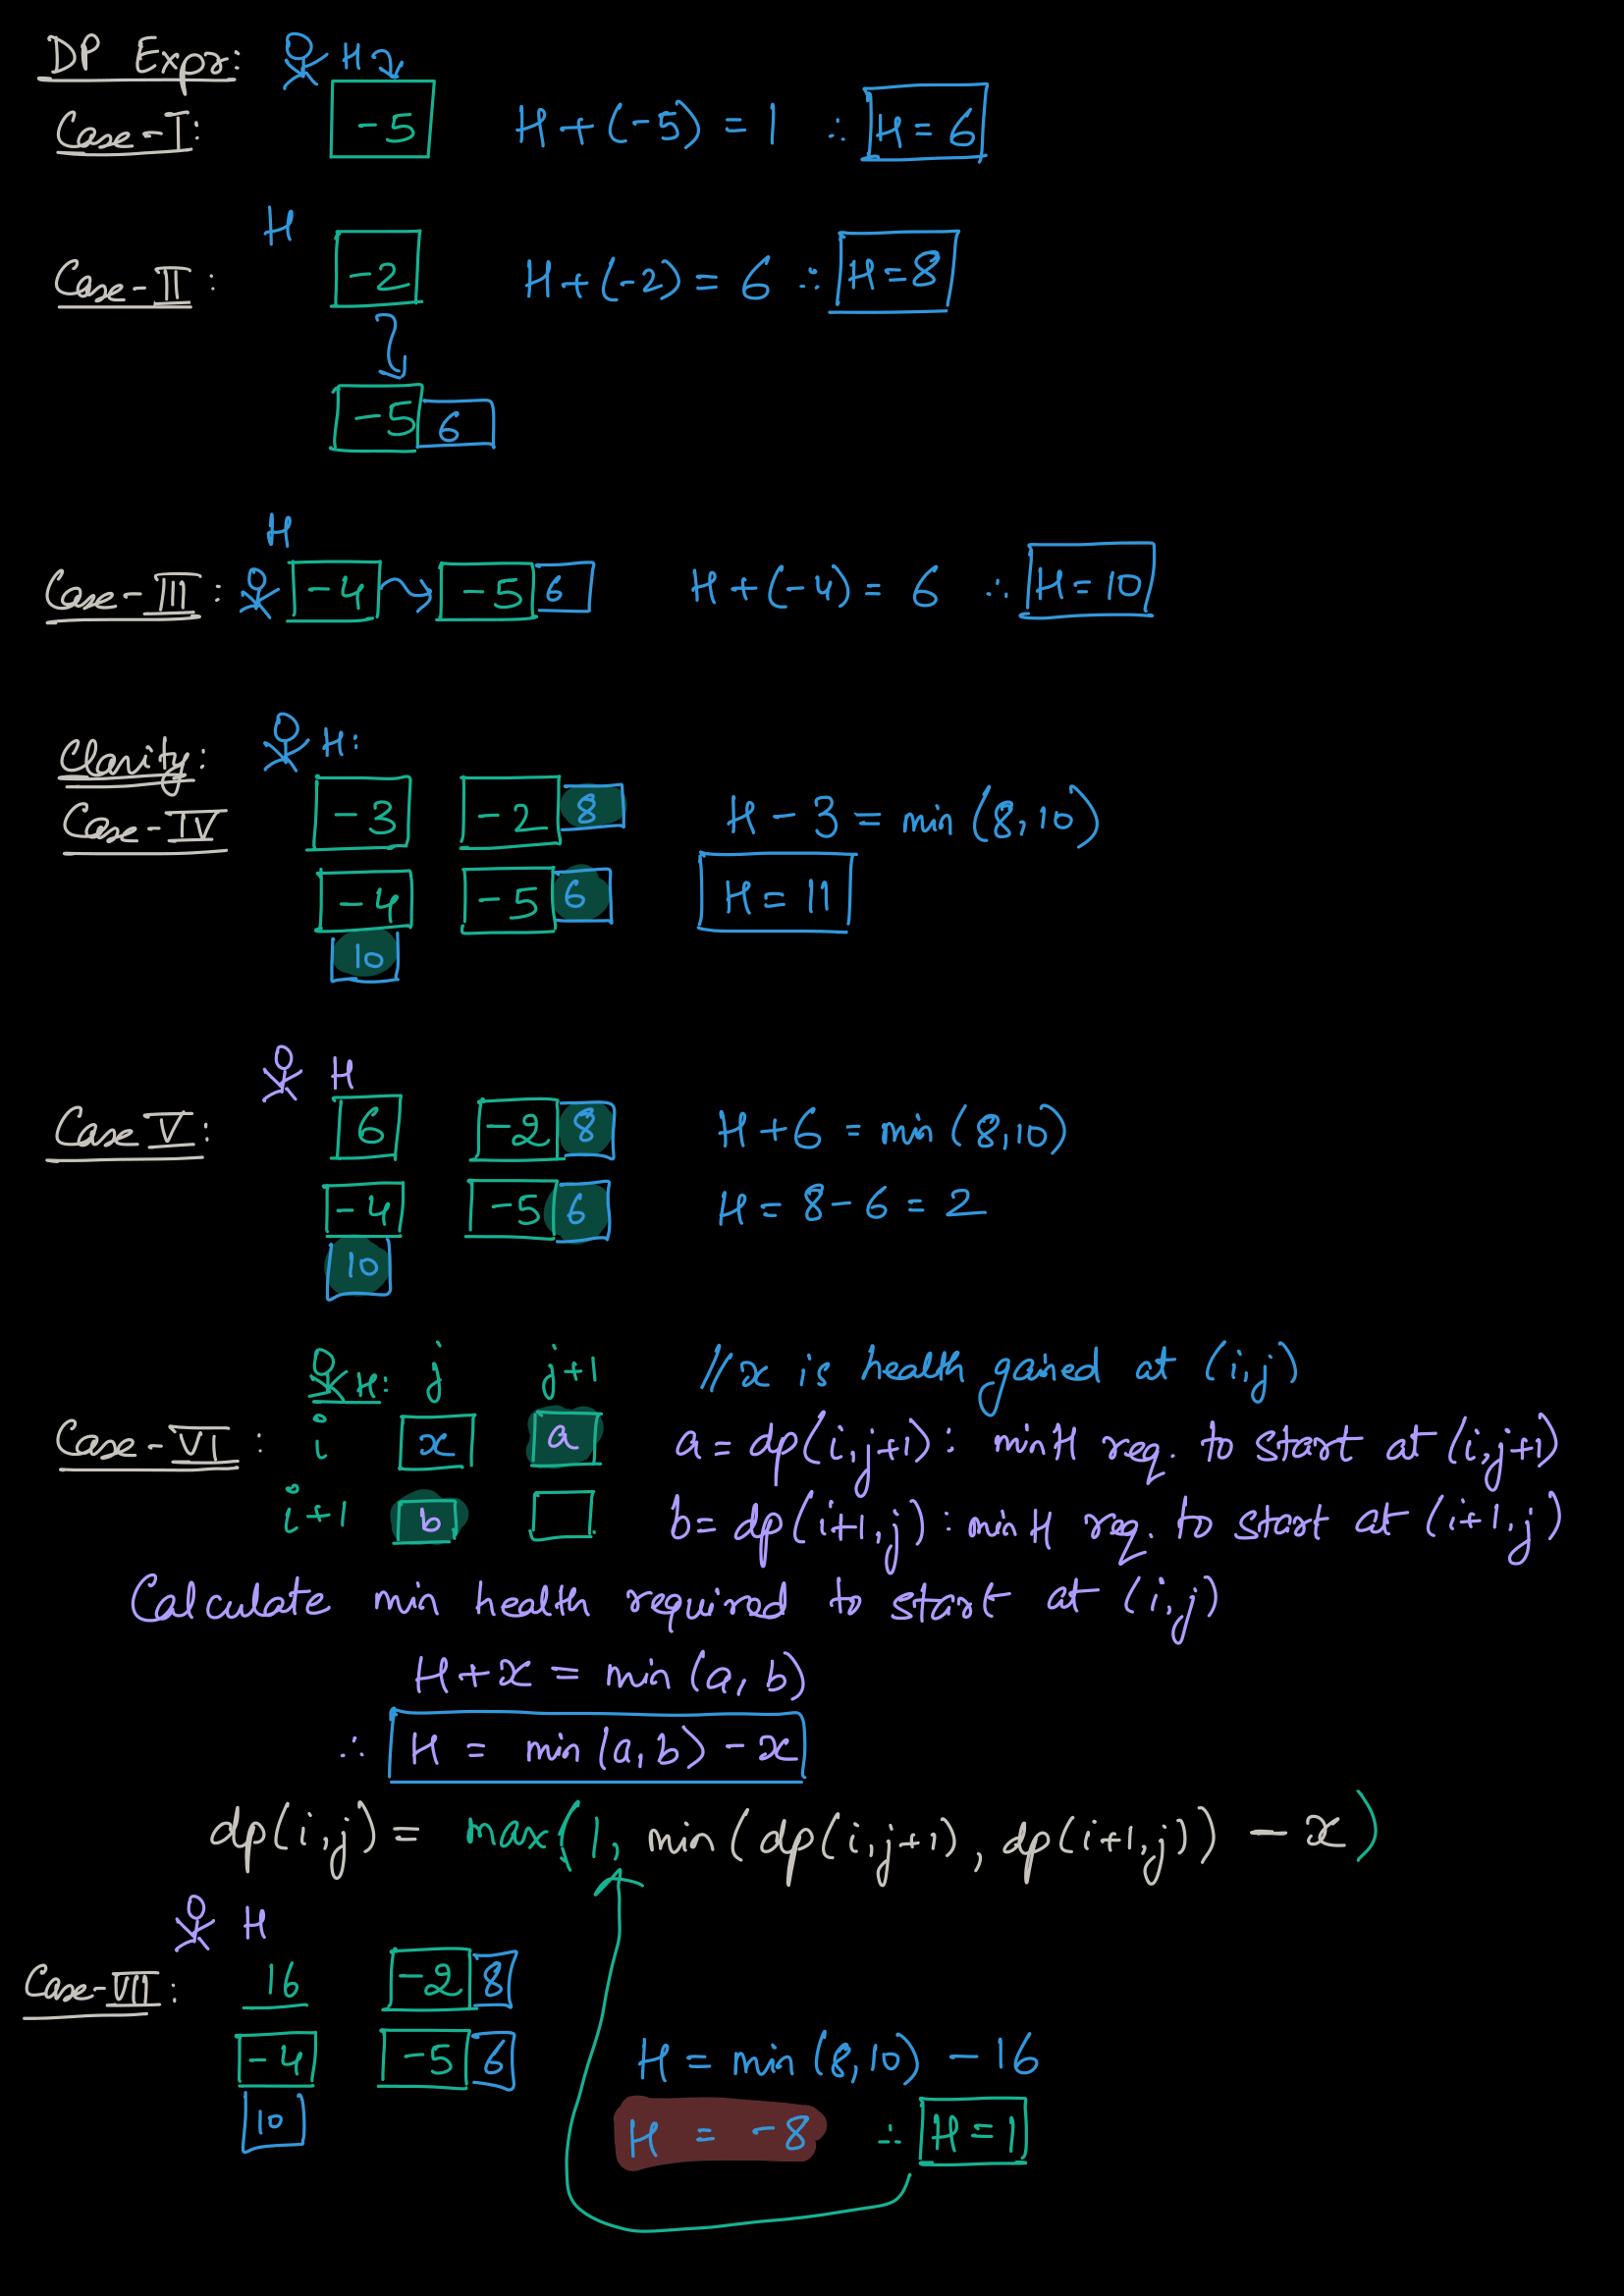 DP Expr: H
Case-I: -5 H+(-5) = 1 ∴ H = 6
H
Case-II: -2 H+(-2) = 6 ∴ H=8
-5 6
H
Case-III: -4 -5 6 H+(-4) = 6 ∴ H=10
Clarity: H:
Case-IV -3 -2 8 H - 3 = min (8,10)
-4 -5 6 H = 11
10
H
Case V: 6 -2 8 H+6 = min (8,10)
-4 -5 6 H = 8-6 = 2
10
H: j j+1 //x is health gained at (i,j)
Case-VI: i x a a = dp(i,j+1): minH req. to start at (i,j+1)
i+1 b b= dp(i+1,j): minH req. to start at (i+1,j)
Calculate min health required to start at (i,j)
H+x = min (a, b)
∴ H = min (a,b) - x
dp(i,j) = max(1, min(dp(i,j+1), dp(i+1,j)) - x)
H
Case-VII: 16 -2 8
-4 -5 6 H = min (8,10) - 16
10 H = -8 ∴ H=1